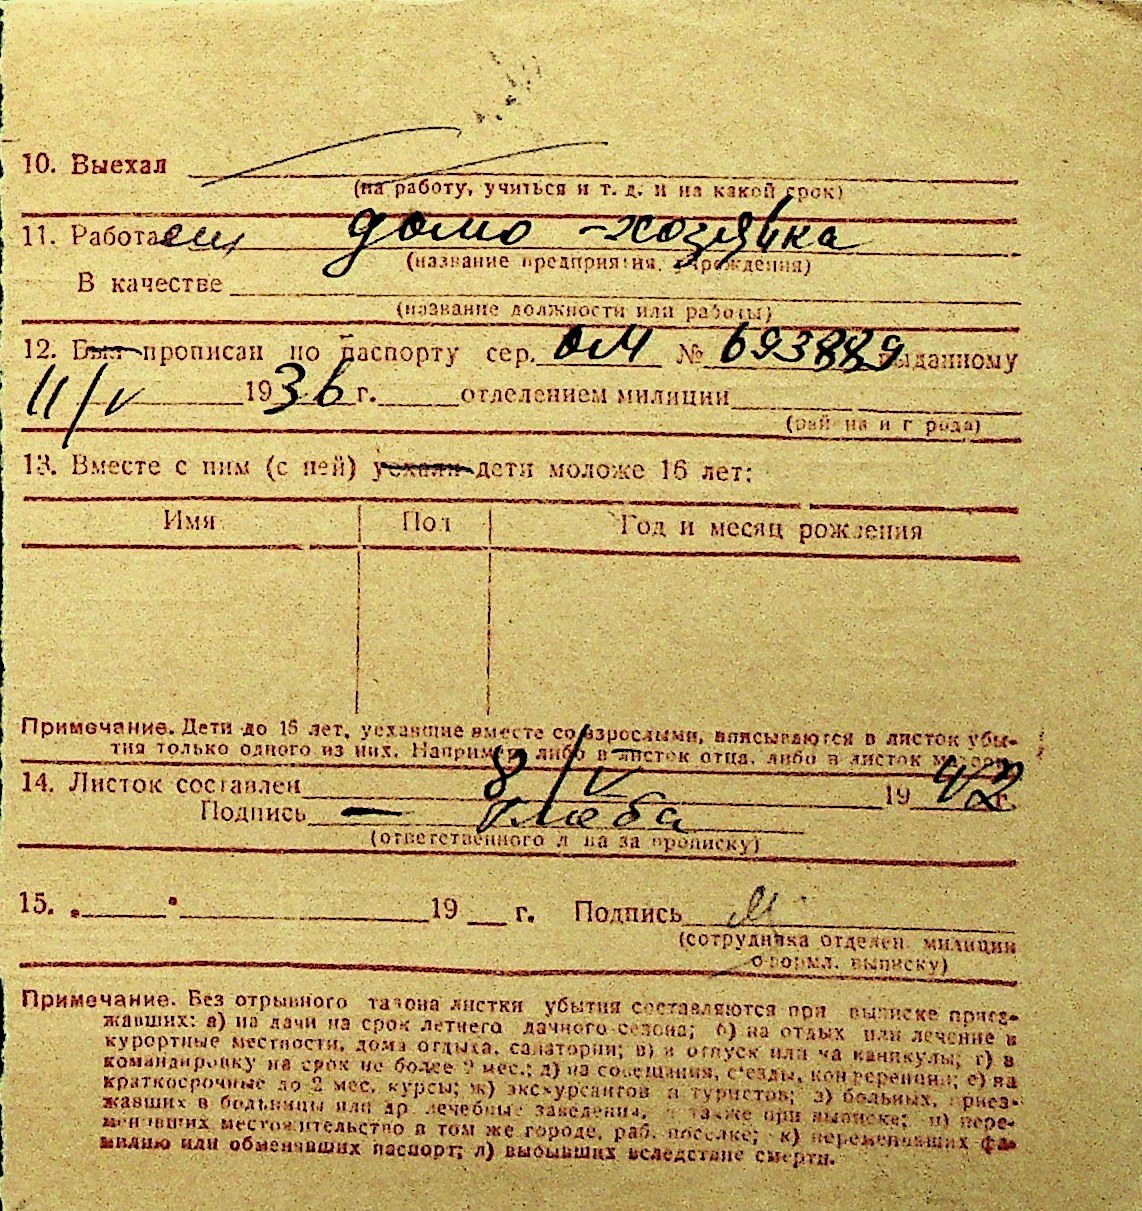 10. Выехал
(на работу, учиться и т. д. и на какой срок)
11. Работает домо-хозяйка
(название предприятия, учреждения)
В качестве
(название должности или работы)
12. Был прописан по паспорту сер. ОМ № 693889 выданному
11/V 1936 г. отделением милиции
(района и города)
13. Вместе с ним (с ней) уехали дети моложе 16 лет:
Имя Пол Год и месяц рождения
Примечание. Дети до 16 лет, уехавшие вместе со взрослыми, вписываются в листок убы-
тия только одного из них. Например, либо в листок отца, либо в листок матери.
14. Листок составлен 8/V 1942 г.
Подпись — Глеба
(ответственного лица за прописку)
15. „ “ 19 г. Подпись
(сотрудника отделен. милиции
оформл. выписку)
Примечание. Без отрывного талона листки убытия составляются при выписке приез-
жавших: а) на дачи на срок летнего дачного сезона; б) на отдых или лечение в
курортные местности, дома отдыха, санатории; в) в отпуск или на каникулы; г) в
командировку на срок не более 2 мес.; д) на совещания, съезды, конференции; е) на
краткосрочные до 2 мес. курсы; ж) экскурсантов и туристов; з) больных, приез-
жавших в больницы или др. лечебные заведения, а также при выписке; и) пере-
менивших местожительство в том же городе, раб. поселке; к) переменивших фа-
милию или обменявших паспорт; л) выбывших вследствие смерти.